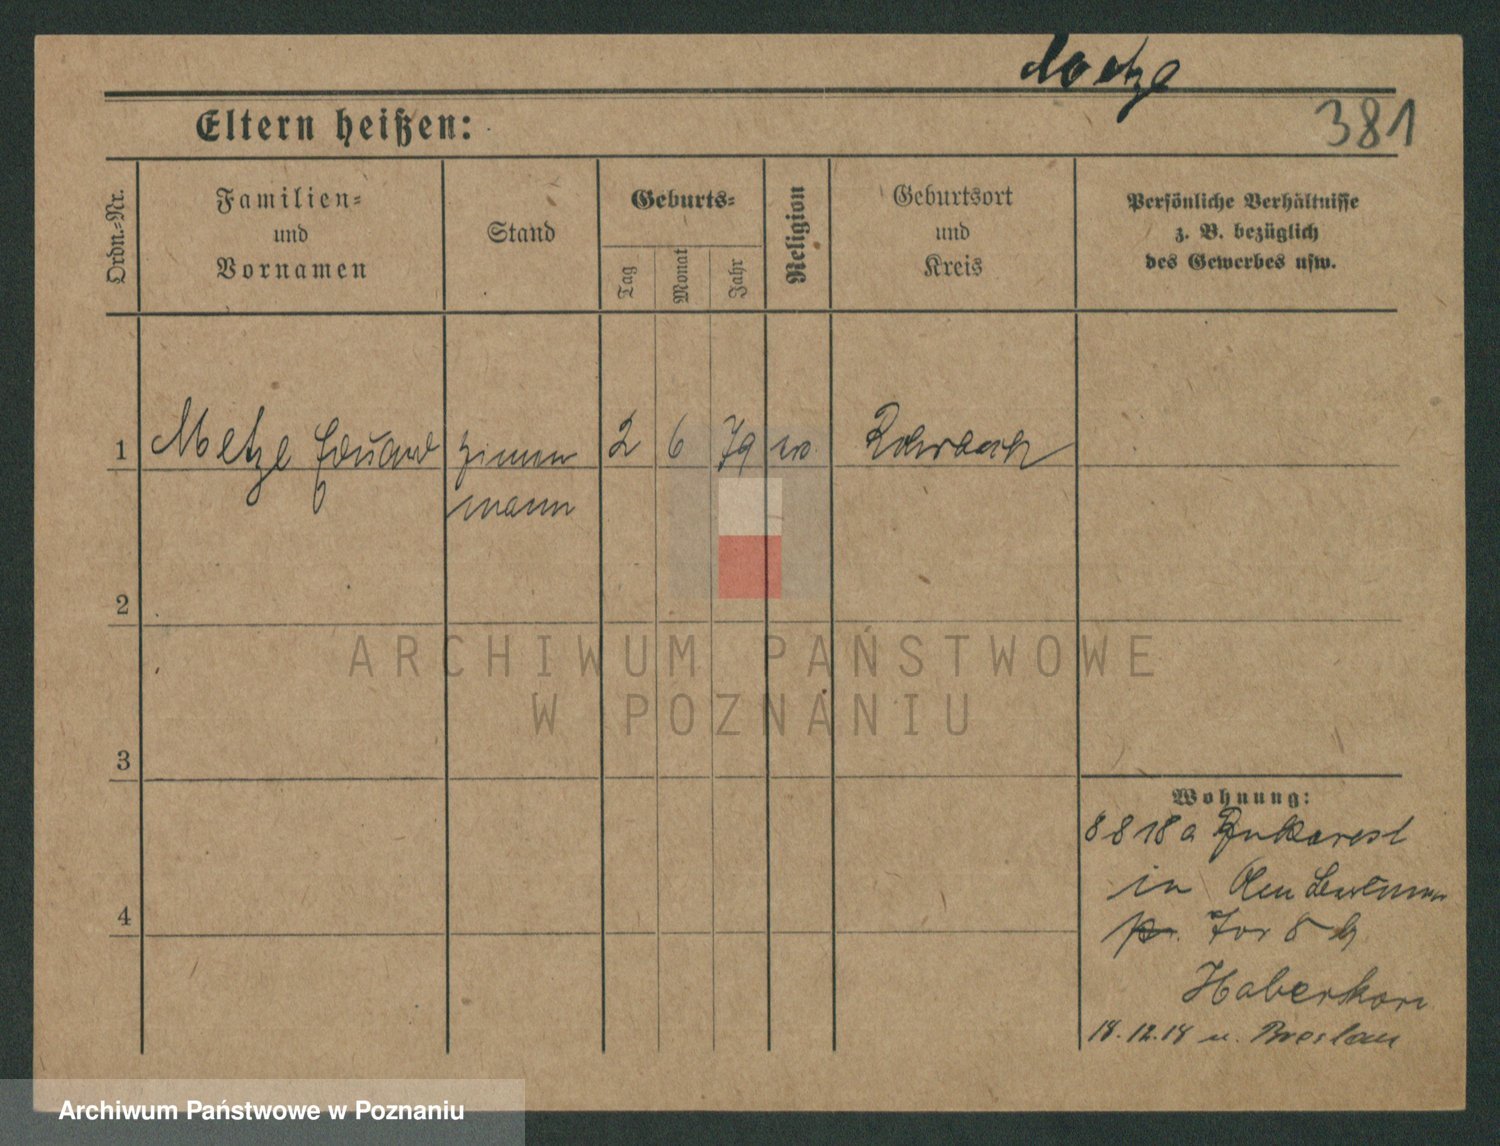 Metze
381
Eltern heißen:
Ordn.-Nr.
Familien-
und
Vornamen
Stand
Geburts-
Tag
Monat
Jahr
Religion
Geburtsort
und
Kreis
Persönliche Verhältnisse
z. B. bezüglich
des Gewerbes usw.
1 Metze Eduard Zimmer 2 6 79 Rohrbach
mann
2
3
4
Wohnung:
8 8 18 a Bukarest
in
pr. Tor 8 b
Haberkorn
18.12.18 n. Breslau
ARCHIWUM PAŃSTWOWE
W POZNANIU
Archiwum Państwowe w Poznaniu